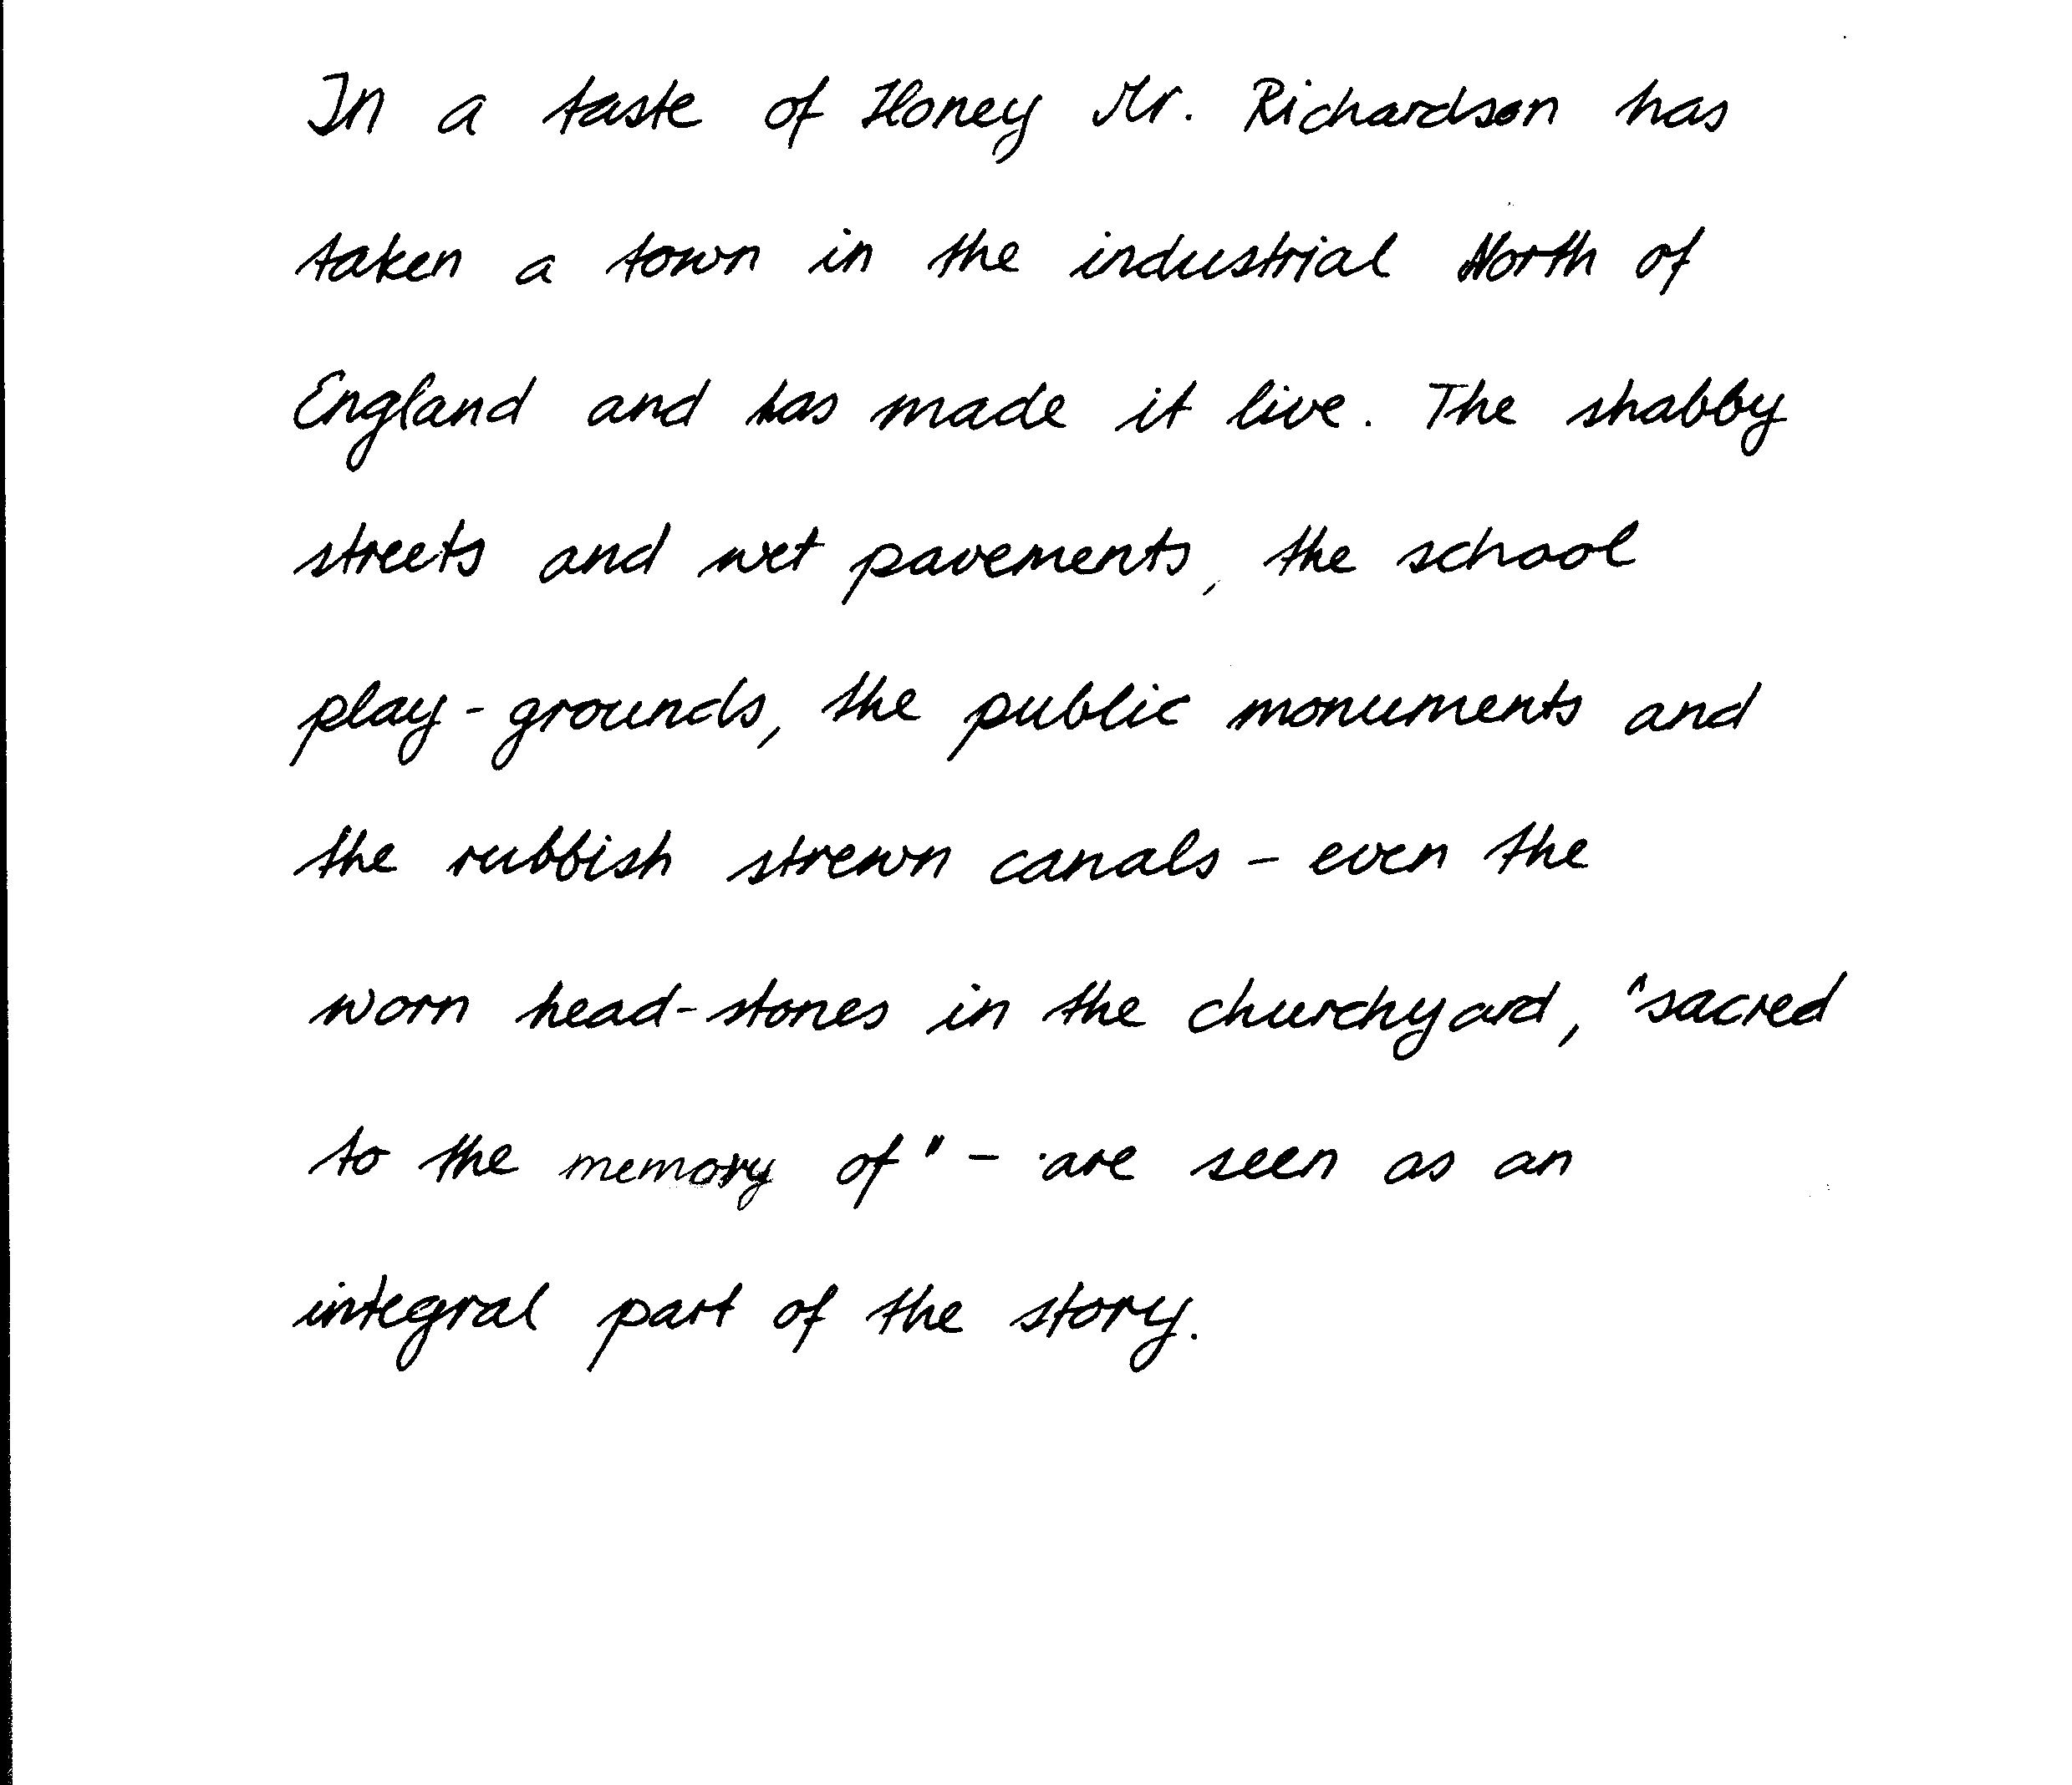 In a taste of Honey Mr. Richardson has
taken a town in the industrial North of
England and has made it live. The shabby
streets and wet pavements, the school
play-grounds, the public monuments and
the rubbish strewn canals - even the
worn head-stones in the churchyard, "sacred
to the memory of" - are seen as an
integral part of the story.